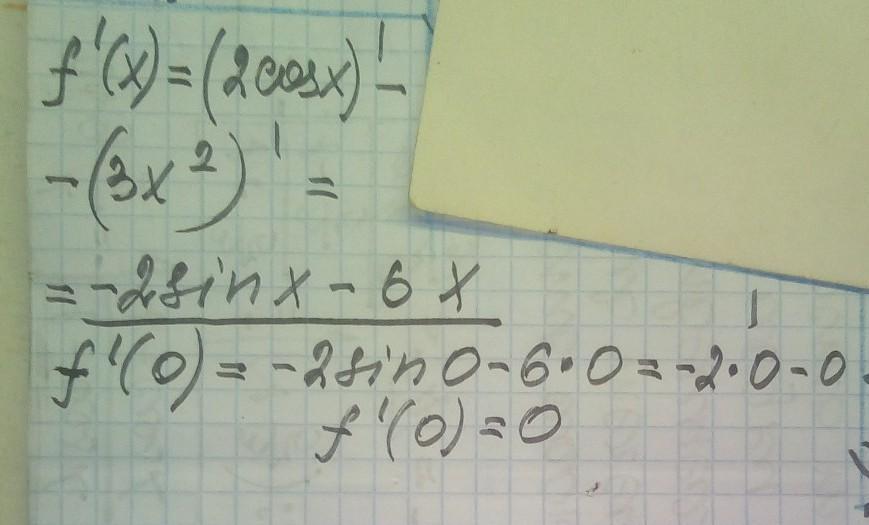 f'(x)=(2cosx)'-
-(3x²)'=
=-2sinx-6x
f'(0)=-2sin0-6·0=-2·0-0
f'(0)=0